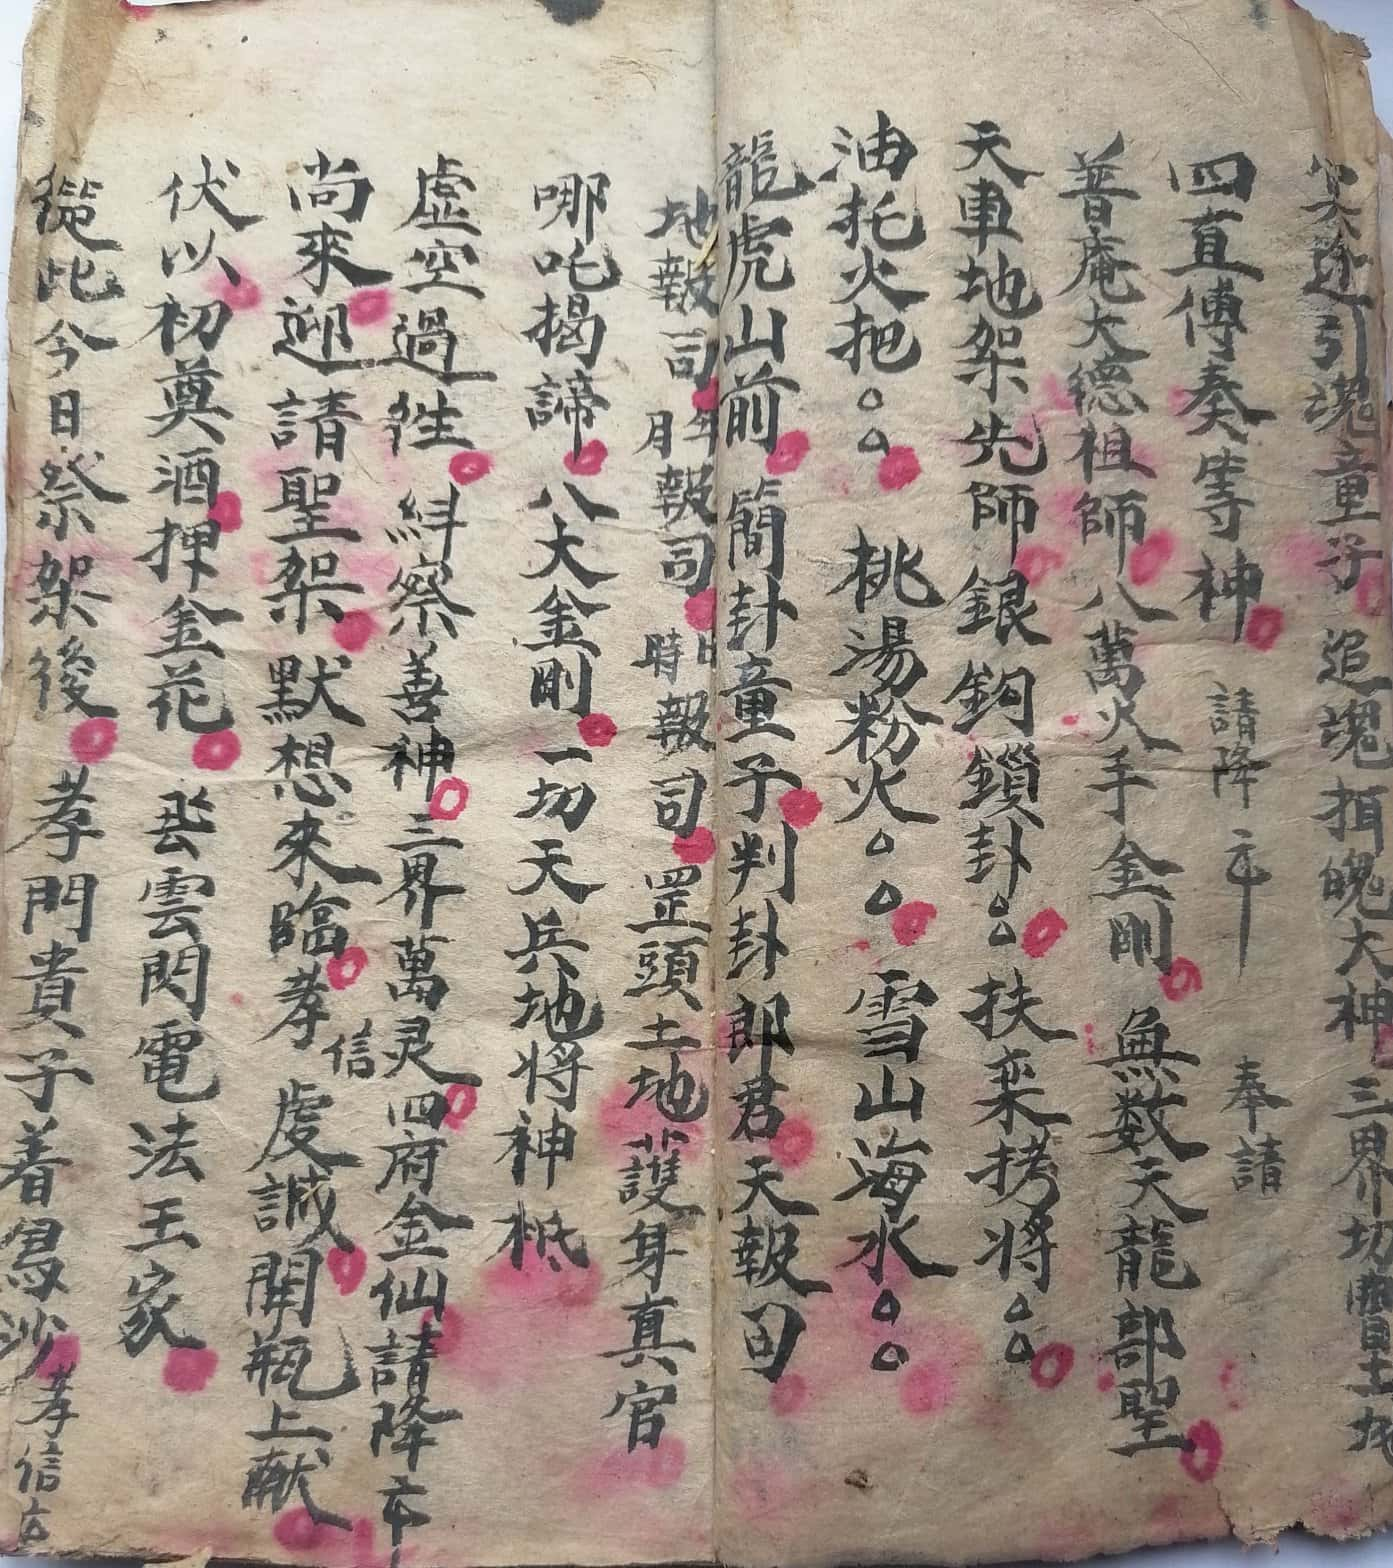 冥途引魂童子追魂押魄大神三界切土地
四直傳奏等神請降 奉請
普庵大德祖師八萬火手金剛無数天龍部聖
天車地架先師銀鈎鎖封扶桒拷將
油托火把 桃湯粉火 雪山海水
龍虎山前簡卦童子判卦郎君天報司
地報司年月報司日時報司罡頭土地護身真官
哪吒揭諦八大金剛一切天兵地将神袛
虛空過徃糾察善神三界萬灵四府金仙請降
尚來迎請聖架默想來臨孝信虔誠開瓶上献
伏以初奠酒押金花 雲閃電法王家
從此今日祭架後孝門貴子着烏沙孝信